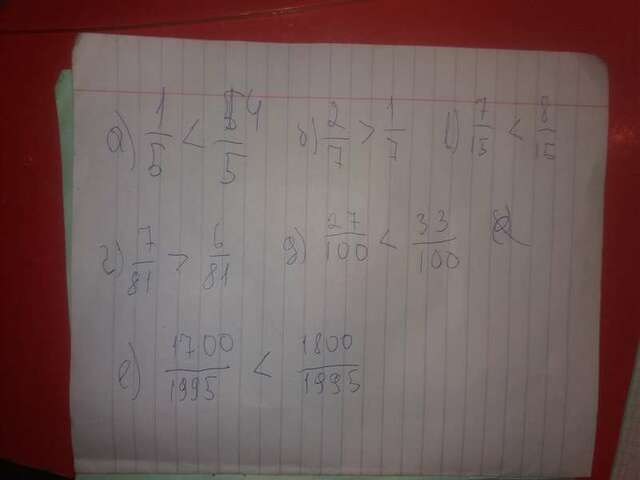 а) 1/5 < 4/5 б) 2/7 > 1/7 в) 7/15 < 8/15
г) 7/81 > 6/81 д) 27/100 < 33/100
е) 1700/1995 < 1800/1995